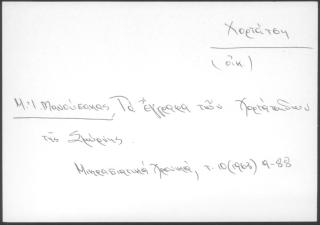 Χορτάτση
(οἰκ.)
Μ.Ι. Μανούσακας, Τά ἔγγραφα τῶν Χορτάτσηδων
τῆς Σμύρνης.
Μικρασιατικά Χρονικά, τ. 10 (1963) 9-88